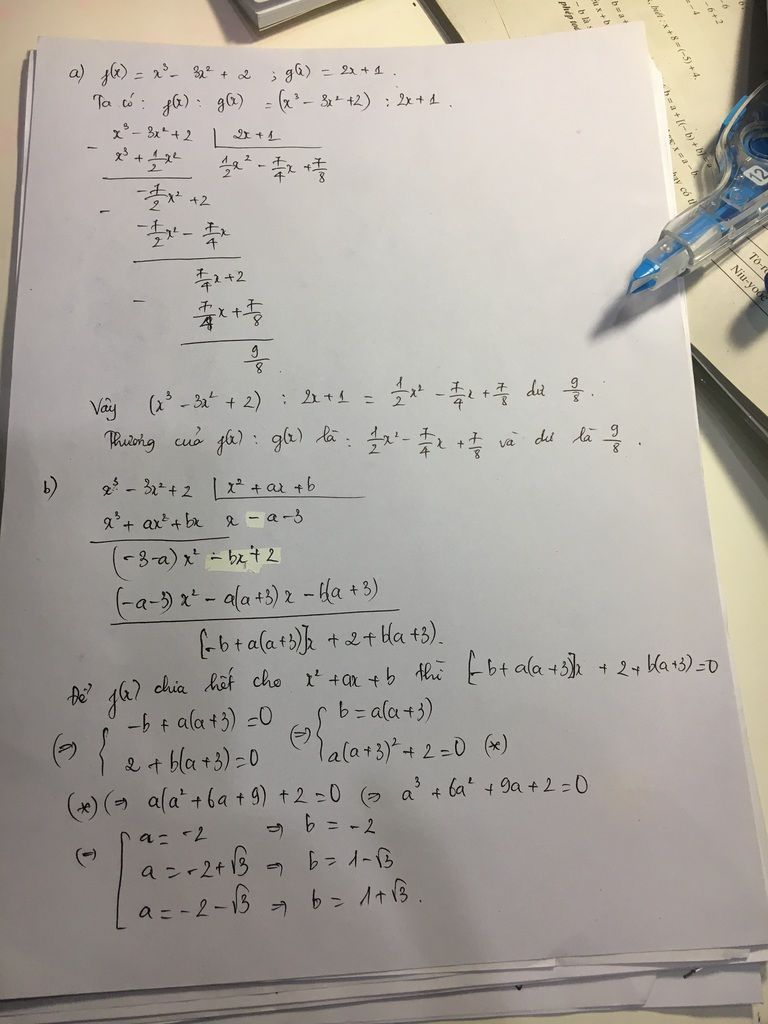 a) f(x) = x³ - 3x² + 2 ; g(x) = 2x + 1 .
Ta có : f(x) : g(x) = (x³ - 3x² + 2) : 2x + 1 .
- x³ - 3x² + 2 | 2x + 1
x³ + 1/2 x² 1/2 x² - 7/4 x + 7/8
-7/2 x² + 2
-
-7/2 x² - 7/4 x
7/4 x + 2
-
7/4 x + 7/8
9/8
Vậy (x³ - 3x² + 2) : 2x + 1 = 1/2 x² - 7/4 x + 7/8 dư 9/8 .
Thương của f(x) : g(x) là : 1/2 x² - 7/4 x + 7/8 và dư là 9/8 .
b) x³ - 3x² + 2 | x² + ax + b
x³ + ax² + bx x - a - 3
(-3-a) x² - bx + 2
(-a-3) x² - a(a+3) x - b(a+3)
[-b + a(a+3)]x + 2 + b(a+3).
Để f(x) chia hết cho x² + ax + b thì [-b + a(a+3)]x + 2 + b(a+3) = 0
(=) { -b + a(a+3) = 0 (=) { b = a(a+3)
2 + b(a+3) = 0 a(a+3)² + 2 = 0 (*)
(*) (=) a(a² + 6a + 9) + 2 = 0 (=) a³ + 6a² + 9a + 2 = 0
(=) [ a = -2 => b = -2
a = -2 + √3 => b = 1 - √3
a = -2 - √3 => b = 1 + √3 .
x + 8 = (-5) + 4.
x = a - b.
12
Niu-yoóc